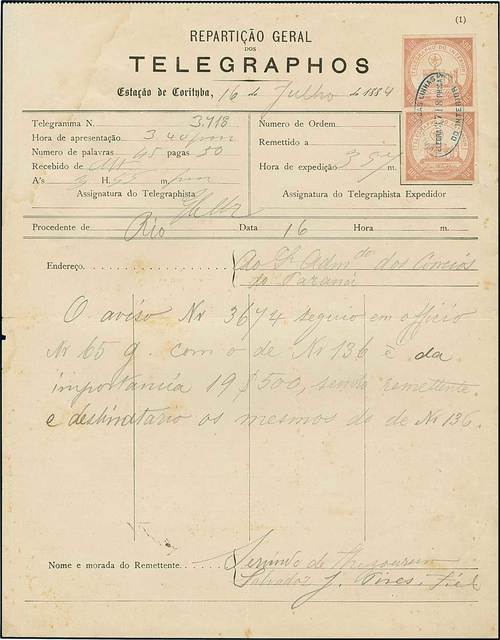 (1)
REPARTIÇÃO GERAL
DOS
TELEGRAPHOS
Estação de Corityba, 16 de Julho de 1884
Telegramma N. 3713
Hora de apresentação 3.40
Numero de palavras 45 pagas 50
Recebido de
A's H. m.
Assignatura do Telegraphista
Numero de Ordem
Remettido a
Hora de expedição m.
Assignatura do Telegraphista Expedidor
Procedente de Rio Data 16 Hora m.
Endereço. Ao Adm.do dos Correios
do Paraná
O aviso Nr 3674 seguio em officio
Nr 65 g. com o de Nr 136 é da
importancia 19$500, sendo remettente
e destinatario os mesmos do de Nr 136.
Nome e morada do Remettente. Servindo de Thesoureiro
Salvador J. Pires, Fiel